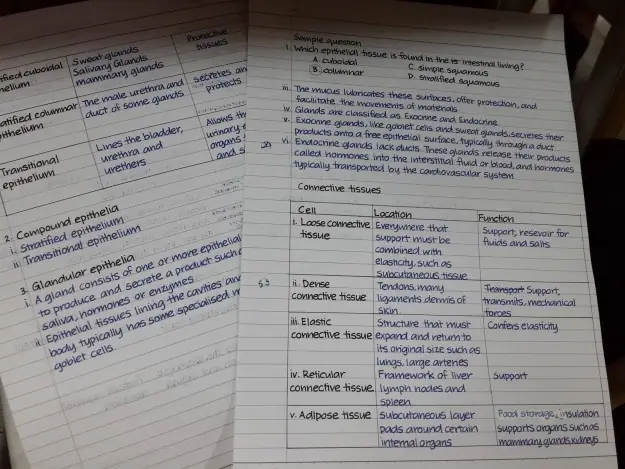 Protective
tissues
tified cuboidal
helium
Sweat glands
Salivary Glands
mammary glands
atified columnar
ithelium
The male urethra and
duct of some glands
secretes an
protects
Transitional
epithelium
Lines the bladder,
urethra and
urethers
Allows th
urinary
organs
and s
2. Compound epithelia
i. Stratified epithelium
ii. Transitional epithelium
3. Glandular epithelia
i. A gland consists of one or more epithelial
to produce and secrete a product such
saliva, hormones or enzymes.
ii. Epithelial tissues lining the cavities and
body typically has some specialised
goblet cells.
Sample question
1. Which epithelial tissue is found in the intestinal lining?
A. cuboidal C. simple squamous
B. columnar D. stratified squamous
iii. The mucus lubricates these surfaces, offer protection, and
facilitate the movements of materials
iv. Glands are classified as Exocrine and Endocrine
v. Exocrine glands, like goblet cells and sweat glands, secretes their
products onto a free epithelial surface, typically through a duct
vi. Endocrine glands lack ducts. These glands release their products
called hormones into the interstitial fluid or blood, and hormones
typically transported by the cardiovascular system
Connective tissues
Cell Location Function
i. Loose connective
tissue
Everywhere that
support must be
combined with
elasticity, such as
subcutaneous tissue
Support, resevoir for
fluids and salts
ii. Dense
connective tissue
Tendons, many
ligaments dermis of
skin
Transport Support,
transmits, mechanical
forces
iii. Elastic
connective tissue
Structure that must
expand and return to
its original size such as
lungs, large arteries
Confers elasticity
iv. Reticular
connective tissue
Framework of liver
lymph nodes and
spleen
Support
v. Adipose tissue
Subcutaneous layer
pads around certain
internal organs
Food storage, insulation
supports organs such as
mammary glands, kidneys